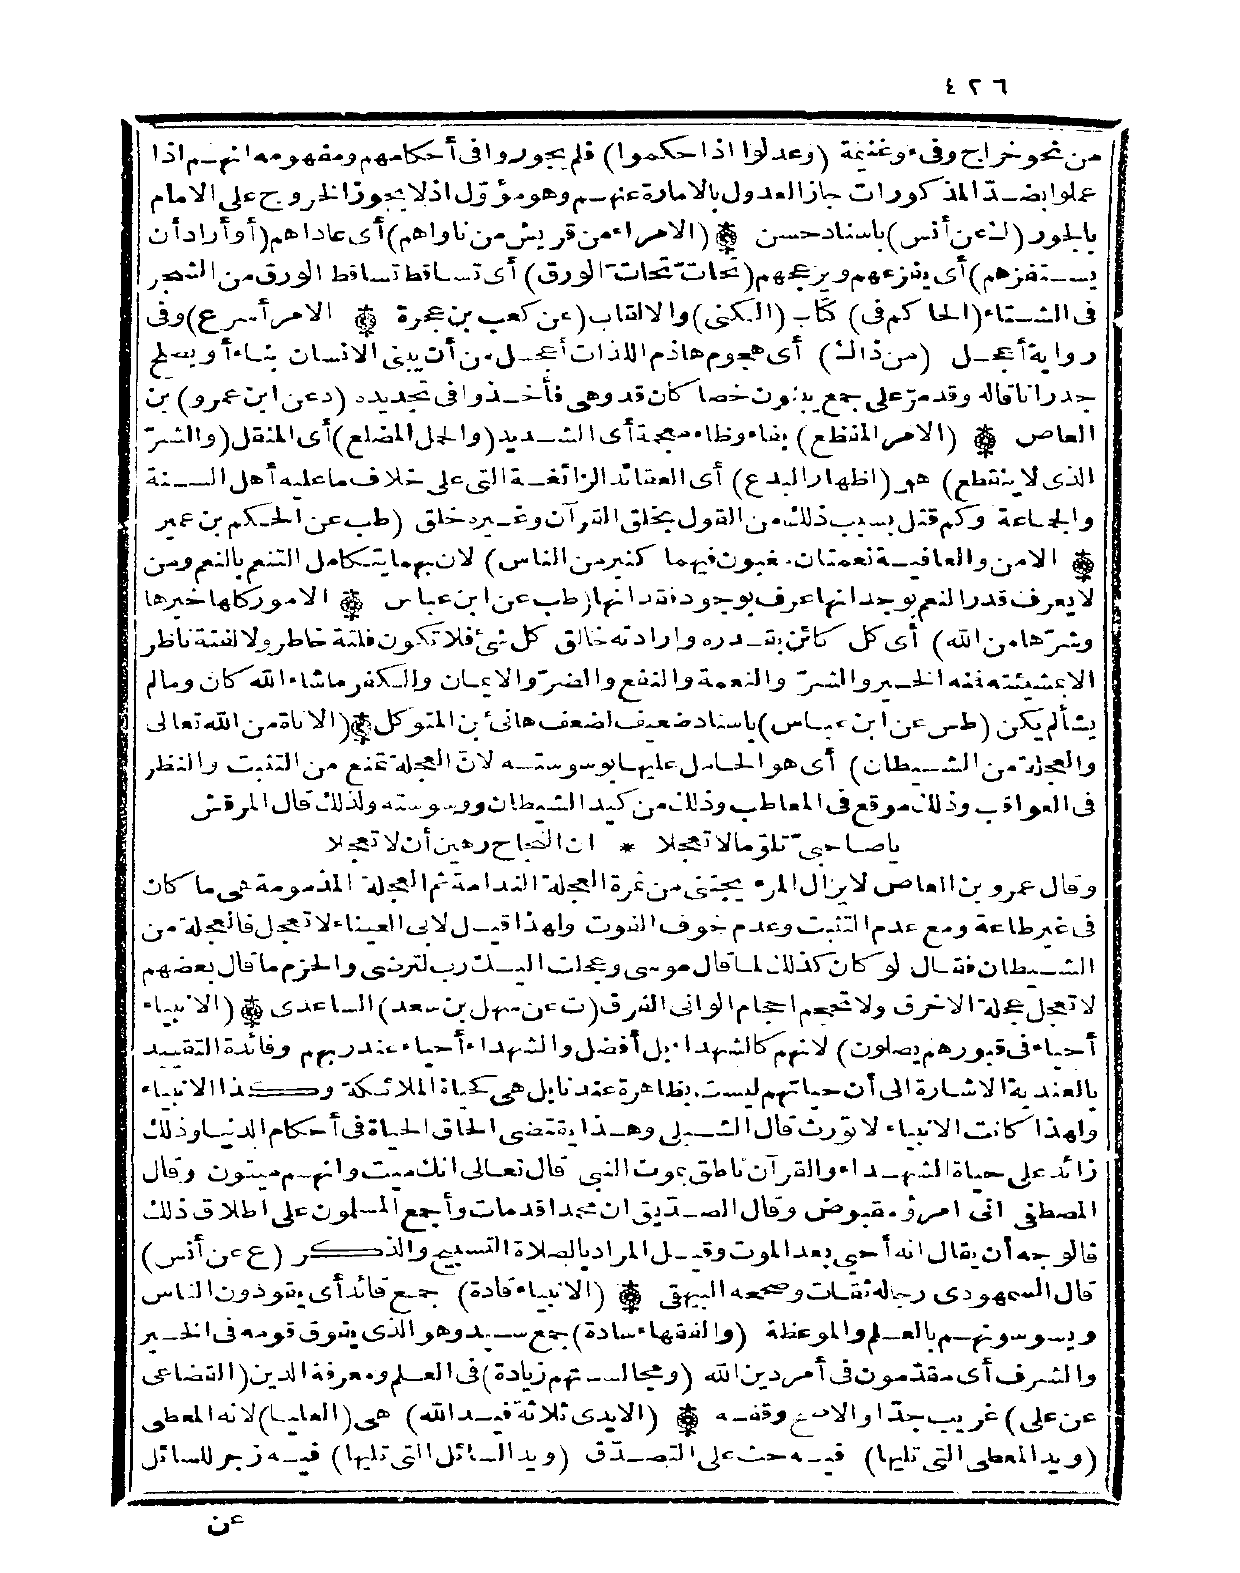 ٤٢٦
من نحو خراج وفىء وغنيمة (وعدلوا اذا حكموا) فلم يجوروا فى أحكامهم ومفهومه انهم اذا
عملوا بضد المذكورات جاز العدول بالامارة عنهم وهو مؤوّل اذ لا يجوز الخروج على الامام
بالجور (ك عن أنس) باسناد حسن ۞ (الامراء من قريش من ناواهم) أى عاداهم (أو أراد أن
يستفزهم) أى يفزعهم ويزعجهم (تحات تحات الورق) أى تساقط تساقط الورق من الشجر
فى الشتاء (الحاكم فى) كتاب (الكنى) والالقاب (عن كعب بن عجرة ۞ الامر أسرع) وفى
رواية أعجل (من ذلك) أى هجوم هاذم اللذات أعجل من أن يبنى الانسان بناء أو يصلح
جدرانا قاله وقد مرّ على جمع يبنون خصا كان قد وهى فأخذوا فى تجديده (د عن ابن عمرو) بن
العاص ۞ (الامر المفظع) بفاء وظاء معجمة أى الشديد (والحمل المضلع) أى المثقل (والشرّ
الذى لا ينقطع) هو (اظهار البدع) أى العقائد الزائغة التى على خلاف ما عليه أهل السنة
والجماعة وكم قتل بسبب ذلك من القول بخلق القرآن وغيره خلق (طب عن الحكم بن عمير
۞ الامن والعافية نعمتان مغبون فيهما كثير من الناس) لان بهما يتكامل التنعم بالنعم ومن
لا يعرف قدر النعم بوجدانها عرف بوجود فقدانها (طب عن ابن عباس ۞ الامور كلها خيرها
وشرّها من الله) أى كل كائن بقدره وارادته خالق كل شئ فلا تكون فلتة خاطر ولا لفتة ناظر
الا بمشيئته فمنه الخير والشرّ والنعمة والنفع والضرّ والايمان والكفر ما شاء الله كان وما لم
يشأ لم يكن (طس عن ابن عباس) باسناد ضعيف لضعف هانئ بن المتوكل ۞ (الاناة من الله تعالى
والعجلة من الشيطان) أى هو الحامل عليها بوسوسته لانّ العجلة تمنع من التثبت والنظر
فى العواقب وذلك موقع فى المعاطب وذلك من كيد الشيطان ووسوسته ولذلك قال المرقش
ياصاحبىّ تلوّما لا تعجلا * ان النجاح رهين أن لا تعجلا
وقال عمرو بن العاص لا يزال المرء يجتنى من ثمرة العجلة الندامة ثم العجلة المذمومة هى ما كان
فى غير طاعة ومع عدم التثبت وعدم خوف الفوت ولهذا قيل لابى العيناء لا تعجل فالعجلة من
الشيطان فقال لو كان كذلك لما قال موسى وعجلت اليك رب لترضى والحزم ما قال بعضهم
لا تعجل عجلة الاخرق ولا تحجم احجام الوانى الفرق (ت عن سهل بن سعد) الساعدى ۞ (الانبياء
أحياء فى قبورهم يصلون) لانهم كالشهداء بل أفضل والشهداء أحياء عند ربهم وفائدة التقييد
بالعندية الاشارة الى أن حياتهم ليست بظاهرة عندنا بل هى كحياة الملائكة وكذا الانبياء
ولهذا كانت الانبياء لا تورث قال السبكى وهذا يقتضى الحاق الحياة فى أحكام الدنيا وذلك
زائد على حياة الشهداء والقرآن ناطق بموت النبي قال تعالى انك ميت وانهم ميتون وقال
المصطفى انى امرؤ مقبوض وقال الصديق ان محمدا قد مات وأجمع المسلمون على اطلاق ذلك
فالوجه أن يقال انه أحيى بعد الموت وقيل المراد بالصلاة التسبيح والذكر (ع عن أنس)
قال السمهودى رجاله ثقات وصححه البيهقى ۞ (الانبياء قادة) جمع قائد أى يقودون الناس
ويسوسونهم بالعلم والموعظة (والفقهاء سادة) جمع سيد وهو الذى يفوق قومه فى الخير
والشرف أى مقدّمون فى أمر دين الله (ومجالستهم زيادة) فى العلم ومعرفة الدين (القضاعى
عن على) غريب جدّا والاصح وقفه ۞ (الايدى ثلاثة فيد الله) هى (العليا) لانه المعطى
(ويد المعطى التى تليها) فيه حث على التصدّق (ويد السائل التى تليها) فيه زجر للسائل
عن